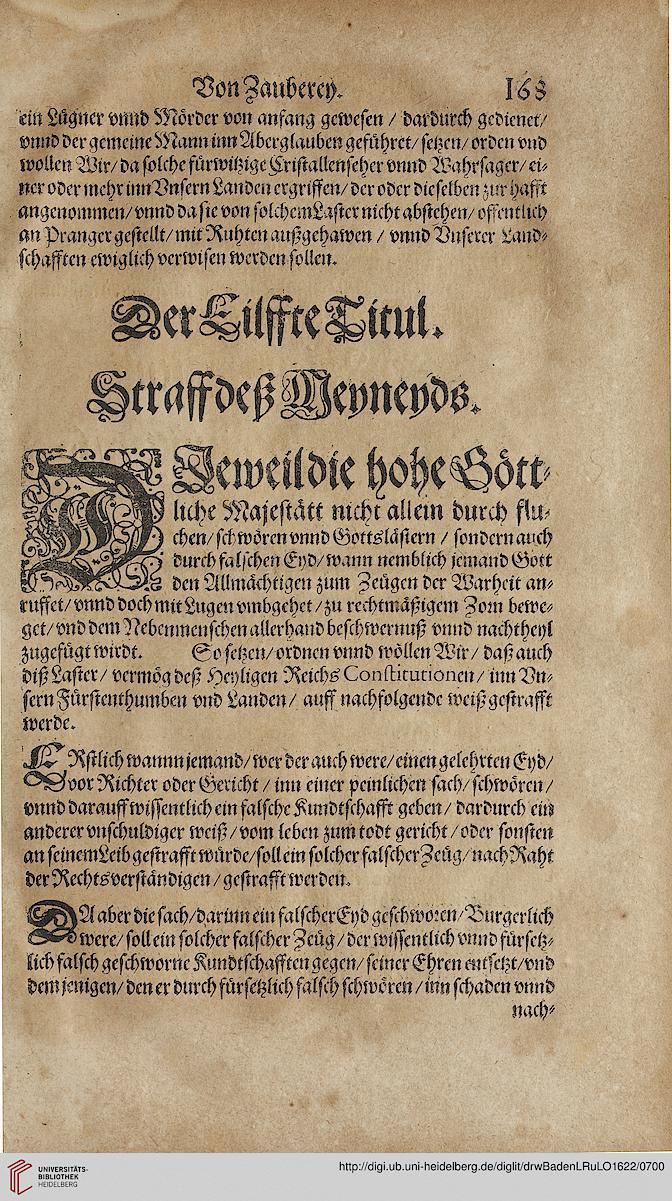 Von Zauberey. 168
ein Lügner vnnd Mörder von anfang gewesen / dardurch gedienet/
vnnd der gemeine Mann inn Aberglauben geführet/ setzen/ orden vnd
wollen Wir/ da solche fürwitzige Cristallenseher vnnd Wahrsager/ ei-
ner oder mehr inn Vnsern Landen ergriffen/ der oder dieselben zur hafft
angenommen/ vnnd da sie von solchem Laster nicht abstehen/ offentlich
an Pranger gestellt/ mit Ruhten außgehawen / vnnd Vnserer Land-
schafften ewiglich verwisen werden sollen.
Der Eilffte Titul.
Straff deß Meyneyds.
DJeweil die hohe Gött-
liche Majestätt nicht allein durch flu-
chen/ schwören vnnd Gottslästern / sondern auch
durch falschen Eyd/ wann nemblich jemand Gott
den Allmächtigen zum Zeügen der Warheit an-
ruffet/ vnnd doch mit Lugen vmbgehet / zu rechtmäßigem Zorn bewe-
get/ vnd dem Nebenmenschen allerhand beschwernuß vnnd nachtheyl
zugefügt wirdt. So setzen/ ordnen vnnd wöllen Wir/ daß auch
diß Laster/ vermög deß Heyligen Reichs Constitutionen/ inn Vn-
sern Fürstenthumben vnd Landen/ auff nachfolgende weiß gestrafft
werde.
ERstlich wannn jemand/ wer der auch were/ einen gelehrten Eyd/
vor Richter oder Gericht / inn einer peinlichen sach/ schwören/
vnnd darauff wissentlich ein falsche Kundtschafft geben/ dardurch ein
anderer vnschuldiger weiß/ vom leben zum todt gericht/ oder sonsten
an seinem Leib gestrafft würde/ soll ein solcher falscher Zeüg/ nach Raht
der Rechtsverständigen / gestrafft werden.
DA aber die sach/ darinn ein falscher Eyd geschworen/ Burgerlich
were/ soll ein solcher falscher Zeüg / der wissentlich vnnd fürsetz-
lich falsch geschworne Kundtschafften gegen/ seiner Ehren entsetzt/ vnd
dem jenigen/ den er durch fürsetzlich falsch schwören / inn schaden vnnd
nach-
UNIVERSITÄTS-
BIBLIOTHEK
HEIDELBERG
http://digi.ub.uni-heidelberg.de/diglit/drwBadenLRuLO1622/0700